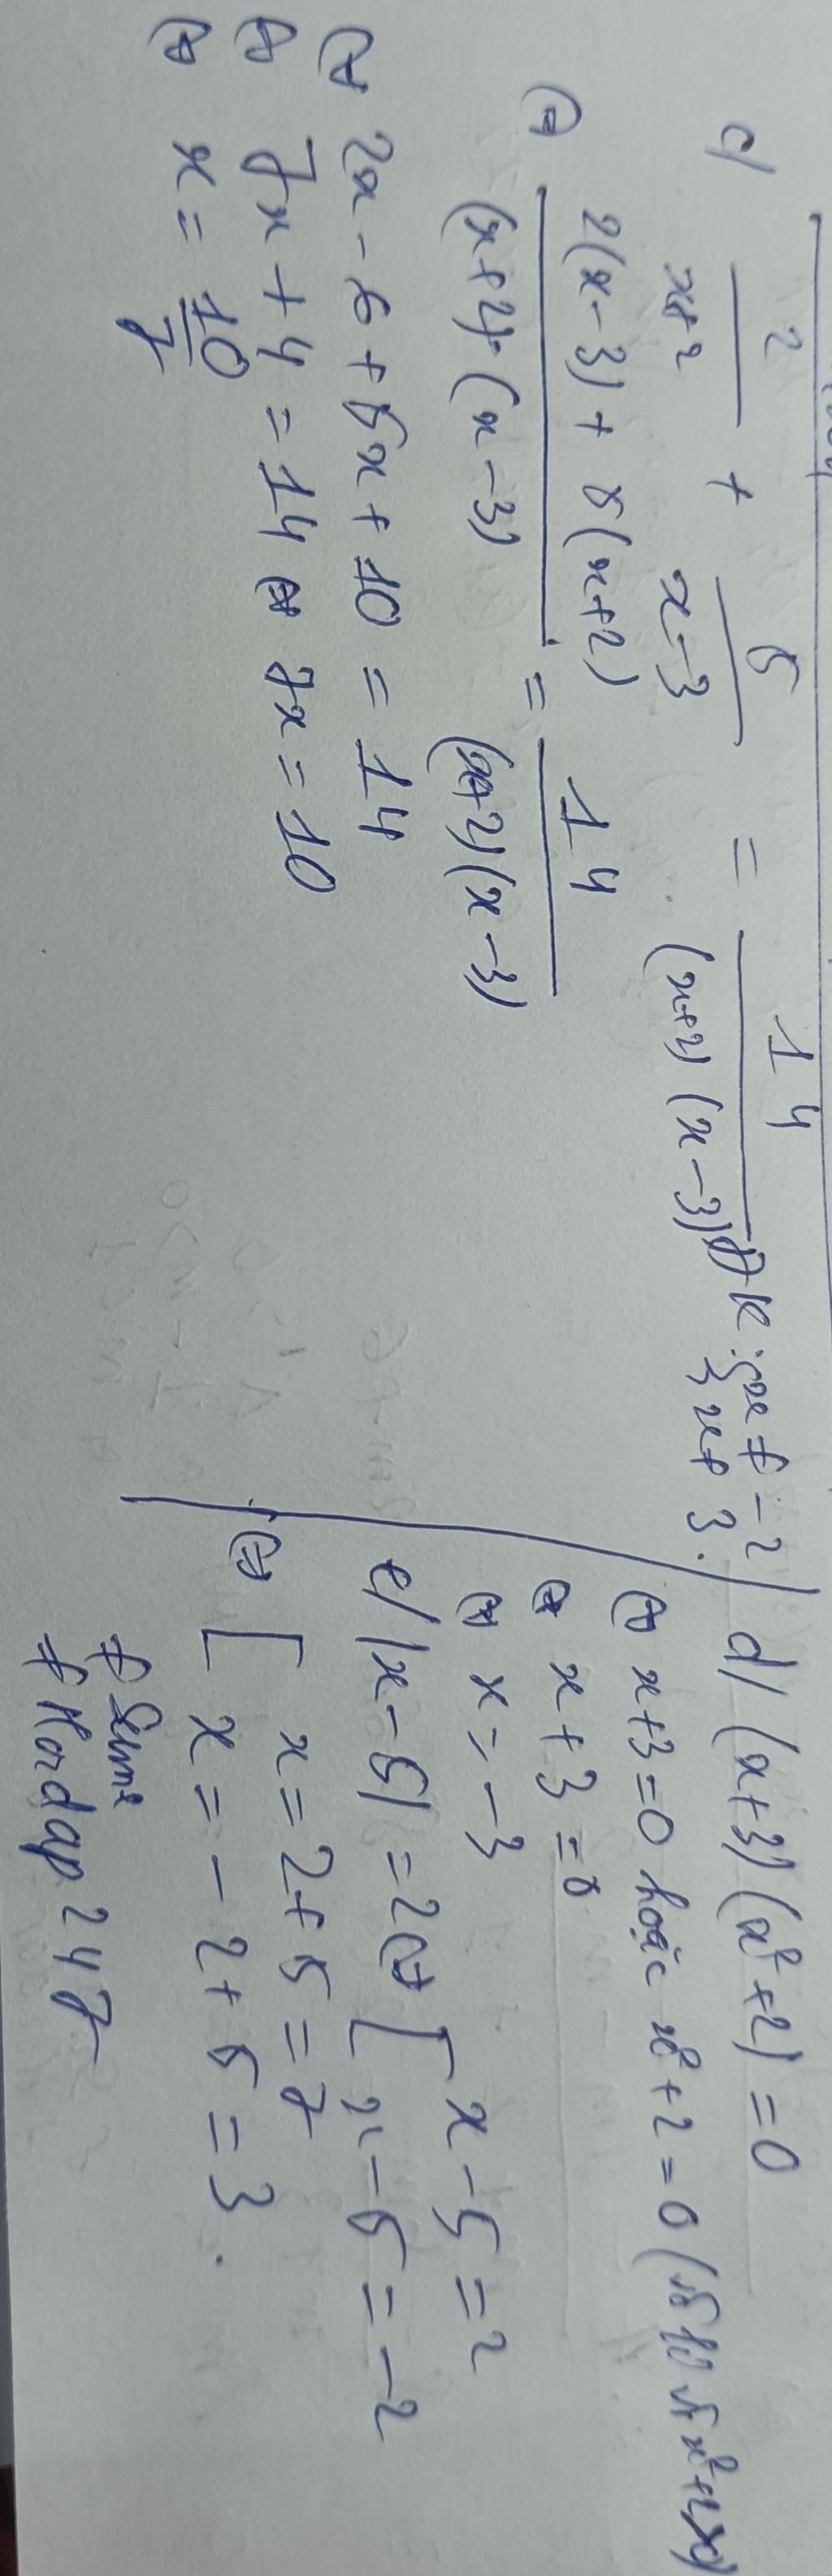 c/ 2/(x+2) + 5/(x-3) = 14/((x+2)(x-3)) ĐK: { x ≠ -2 { x ≠ 3.
⇔ (2(x-3) + 5(x+2))/((x+2).(x-3)) = 14/((x+2)(x-3))
⇔ 2x - 6 + 5x + 10 = 14
⇔ 7x + 4 = 14 ⇔ 7x = 10
⇔ x = 10/7
d/ (x+3)(x²+2) = 0
⇔ x+3 = 0 hoặc x²+2 = 0 (
⇔ x+3 = 0
⇔ x = -3
e/ |x-5| = 2 ⇔ [ x-5 = 2
x-5 = -2
⇔ [ x = 2+5 = 7
x = -2+5 = 3.
# Hoidap247